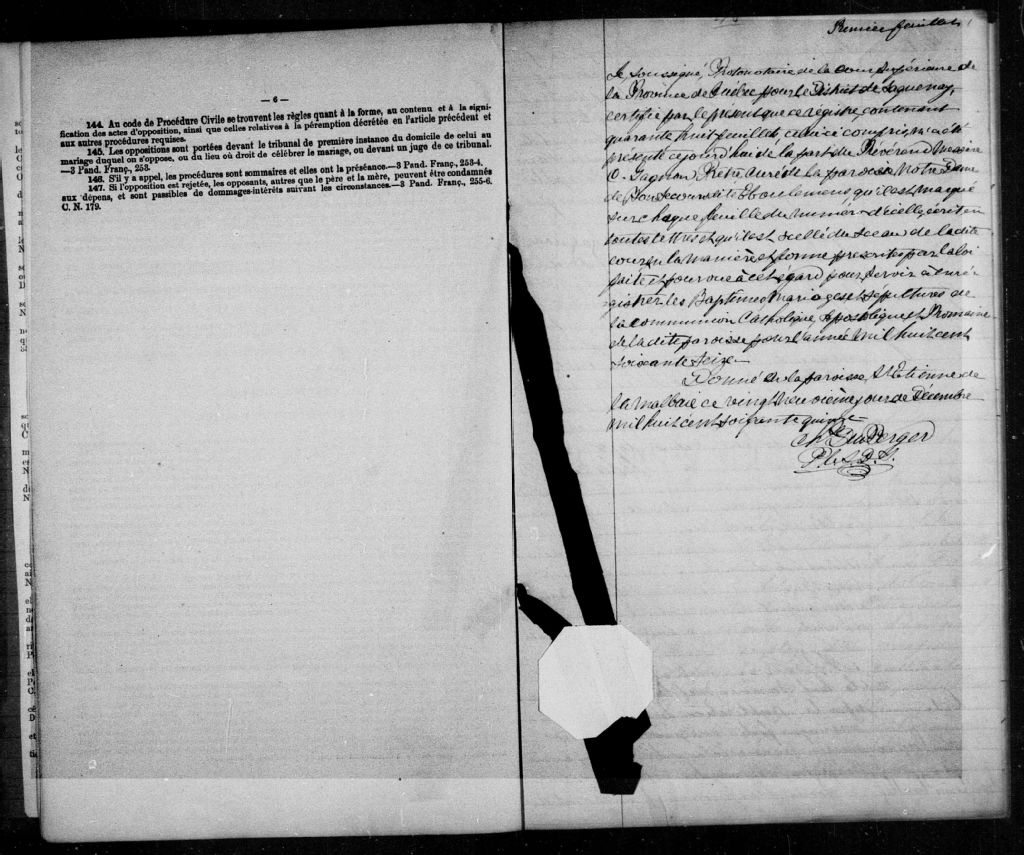 — 6 —
144. Au code de Procédure Civile se trouvent les règles quant à la forme, au contenu et à la signi-
fication des actes d'opposition, ainsi que celles relatives à la péremption décrétée en l'article précédent et
aux autres procédures requises.
145. Les oppositions sont portées devant le tribunal de première instance du domicile de celui au
mariage duquel on s'oppose, ou du lieu où droit de célébrer le mariage, ou devant un juge de ce tribunal.
—3 Pand. Franç, 253.
146. S'il y a appel, les procédures sont sommaires et elles ont la préséance.—3 Pand. Franç, 253-4.
147. Si l'opposition est rejetée, les opposants, autres que le père et la mère, peuvent être condamnés
aux dépens, et sont passibles de dommages-intérêts suivant les circonstances.—3 Pand. Franç, 255-6.
C. N. 179.
Premier feuillet
Je, soussigné, Protonotaire de la Cour Supérieure de
la Province de Québec pour le District de Saguenay,
certifie par le présent que ce registre contenant
quarante huit feuillets, celui ci compris, a été
présenté ce jourd'hui de la part du Révérend Messire
O. Gagnon, Prêtre Curé de la paroisse Notre Dame
de Bonsecours dite Eboulemens qu'il est marqué
sur chaque feuille du numéro d'icelle, écrit en
toutes lettres et qu'il est scellé du sceau de la dite
cour en la manière et forme prescrites par la loi
faite et pourvue à cet égard pour servir à enré-
gistrer les Baptêmes Mariages et Sépultures de
la Communion Catholique Apostolique et Romaine
de la dite paroisse pour l'année mil huit cent
soixante seize—
Donné en la paroisse St Etienne de
la Malbaie ce vingt neuvième jour de Décembre
mil huit cent soixante quinze—
DuBerger
P. C. S. D. S.